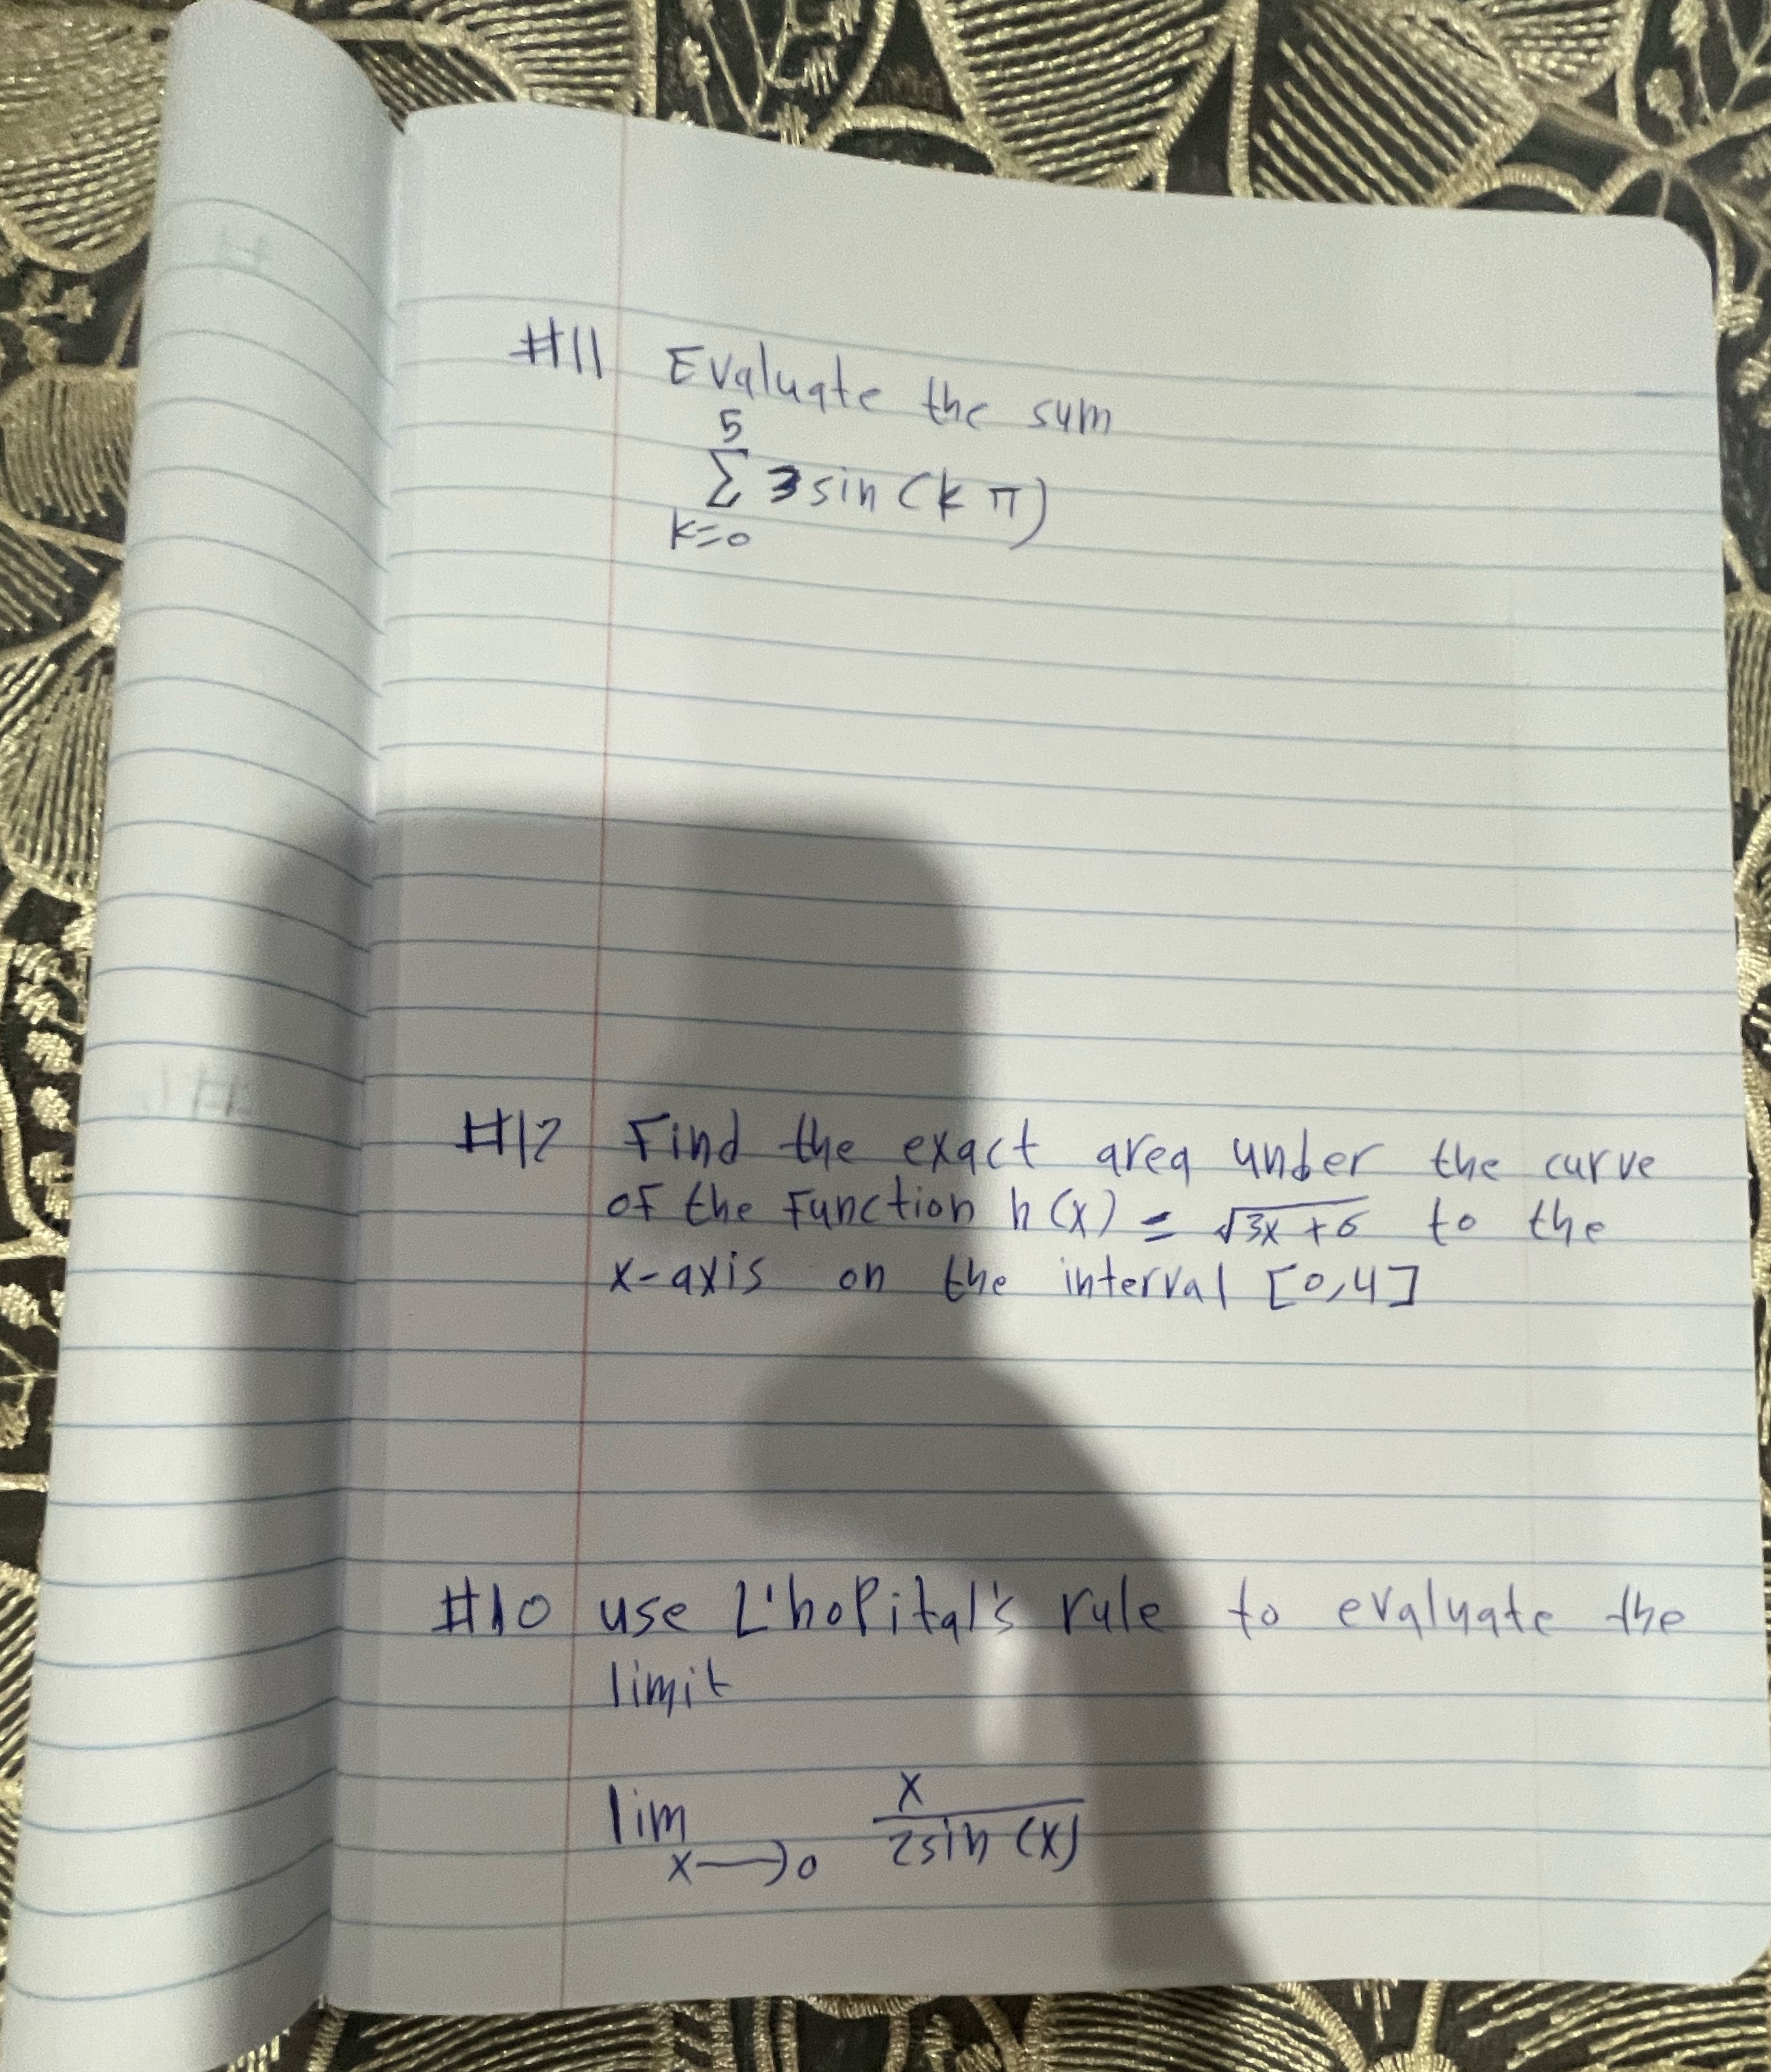 #11 Evaluate the sum
5
Σ 3 sin (k π)
k=0
#12 Find the exact area under the curve
of the function h(x) = √3x+6 to the
x-axis on the interval [0,4]
#10 use L'hopital's rule to evaluate the
limit
lim x
x→0 2sin(x)